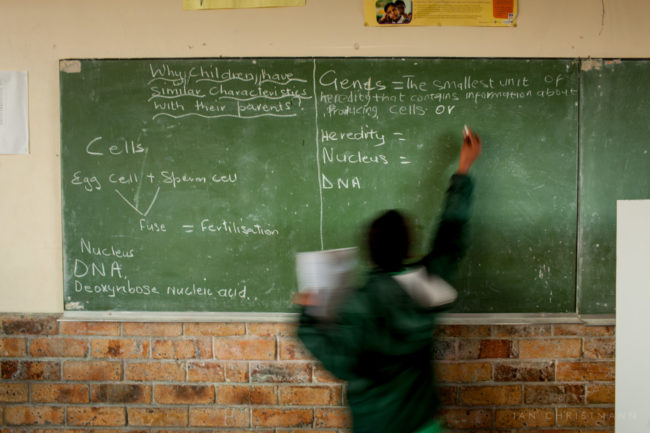 Why Children have
Similar Characteristics
with their parents?
Cells
Egg cell + Sperm cell
fuse = fertilisation
Nucleus
DNA.
Deoxyribose nucleic acid.
Gends = The smallest unit of
heredity that contains information about
producing cells or
Heredity =
Nucleus =
DNA
IAN CHRISTMANN